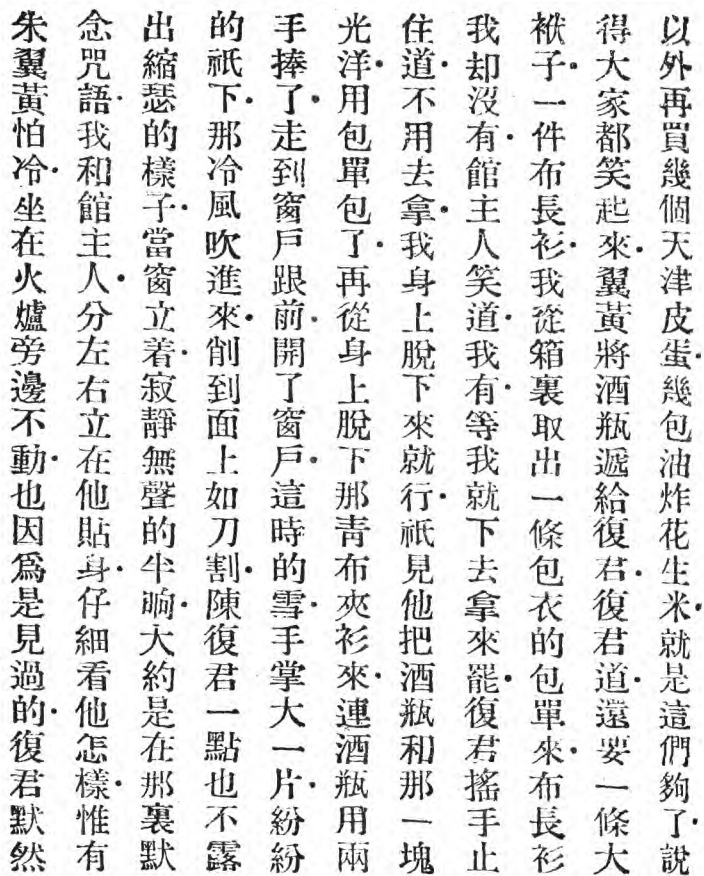 以外再買幾個天津皮蛋·幾包油炸花生米·就是這們夠了·說
得大家都笑起來·翼黃將酒瓶遞給復君·復君道·還要一條大
袱子·一件布長衫·我從箱裏取出一條包衣的包單來·布長衫
我却沒有·館主人笑道·我有·等我就下去拿來罷·復君搖手止
住道·不用去拿·我身上脫下來就行·祇見他把酒瓶和那一塊
光洋·用包單包了·再從身上脫下那青布夾衫來·連酒瓶用兩
手捧了·走到窗戶跟前·開了窗戶·這時的雪·手掌大一片·紛紛
的祇下·那冷風吹進來·削到面上如刀割·陳復君一點也不露
出縮瑟的樣子·當窗立着·寂靜無聲的半晌·大約是在那裏默
念咒語·我和館主人·分左右立在他貼身·仔細看他怎樣·惟有
朱翼黃怕冷·坐在火爐旁邊不動·也因爲是見過的·復君默然